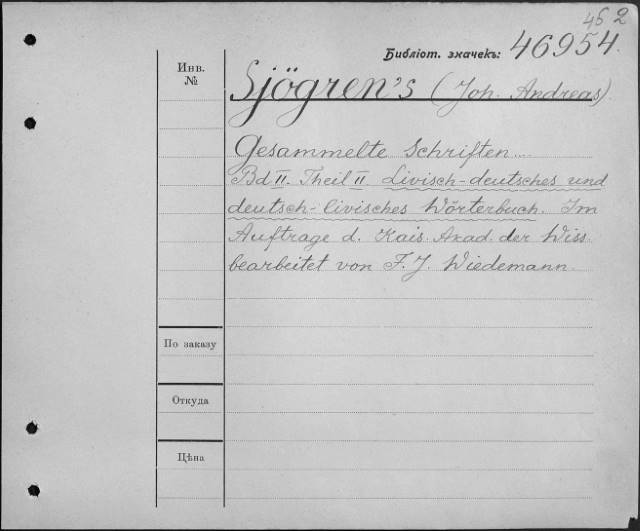 45 2
Библіот. значекъ: 46954.
Инв.
№
Sjögren's (Joh. Andreas).
Gesammelte Schriften...
Bd II. Theil II. Livisch-deutsches und
deutsch-livisches Wörterbuch. Im
Auftrage d. Kais. Akad. der Wiss.
bearbeitet von F. J. Wiedemann.
По заказу
Откуда
Цѣна